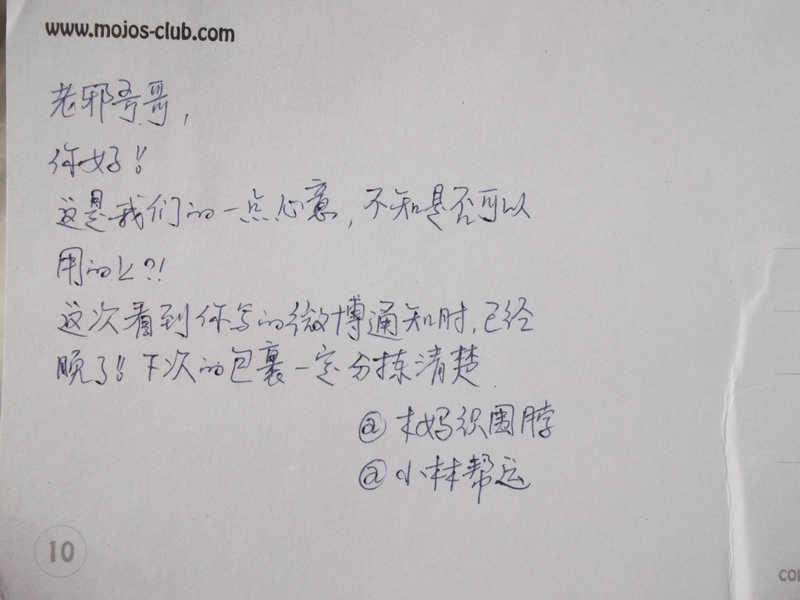 www.mojos-club.com
老邪哥哥,
你好!!
这是我们的一点心意,不知是否可以
用的上?!
这次看到你写的微博通知时,已经
晚了!!下次的包裹一定分拣清楚.
@木妈织围脖
@小林帮运
10